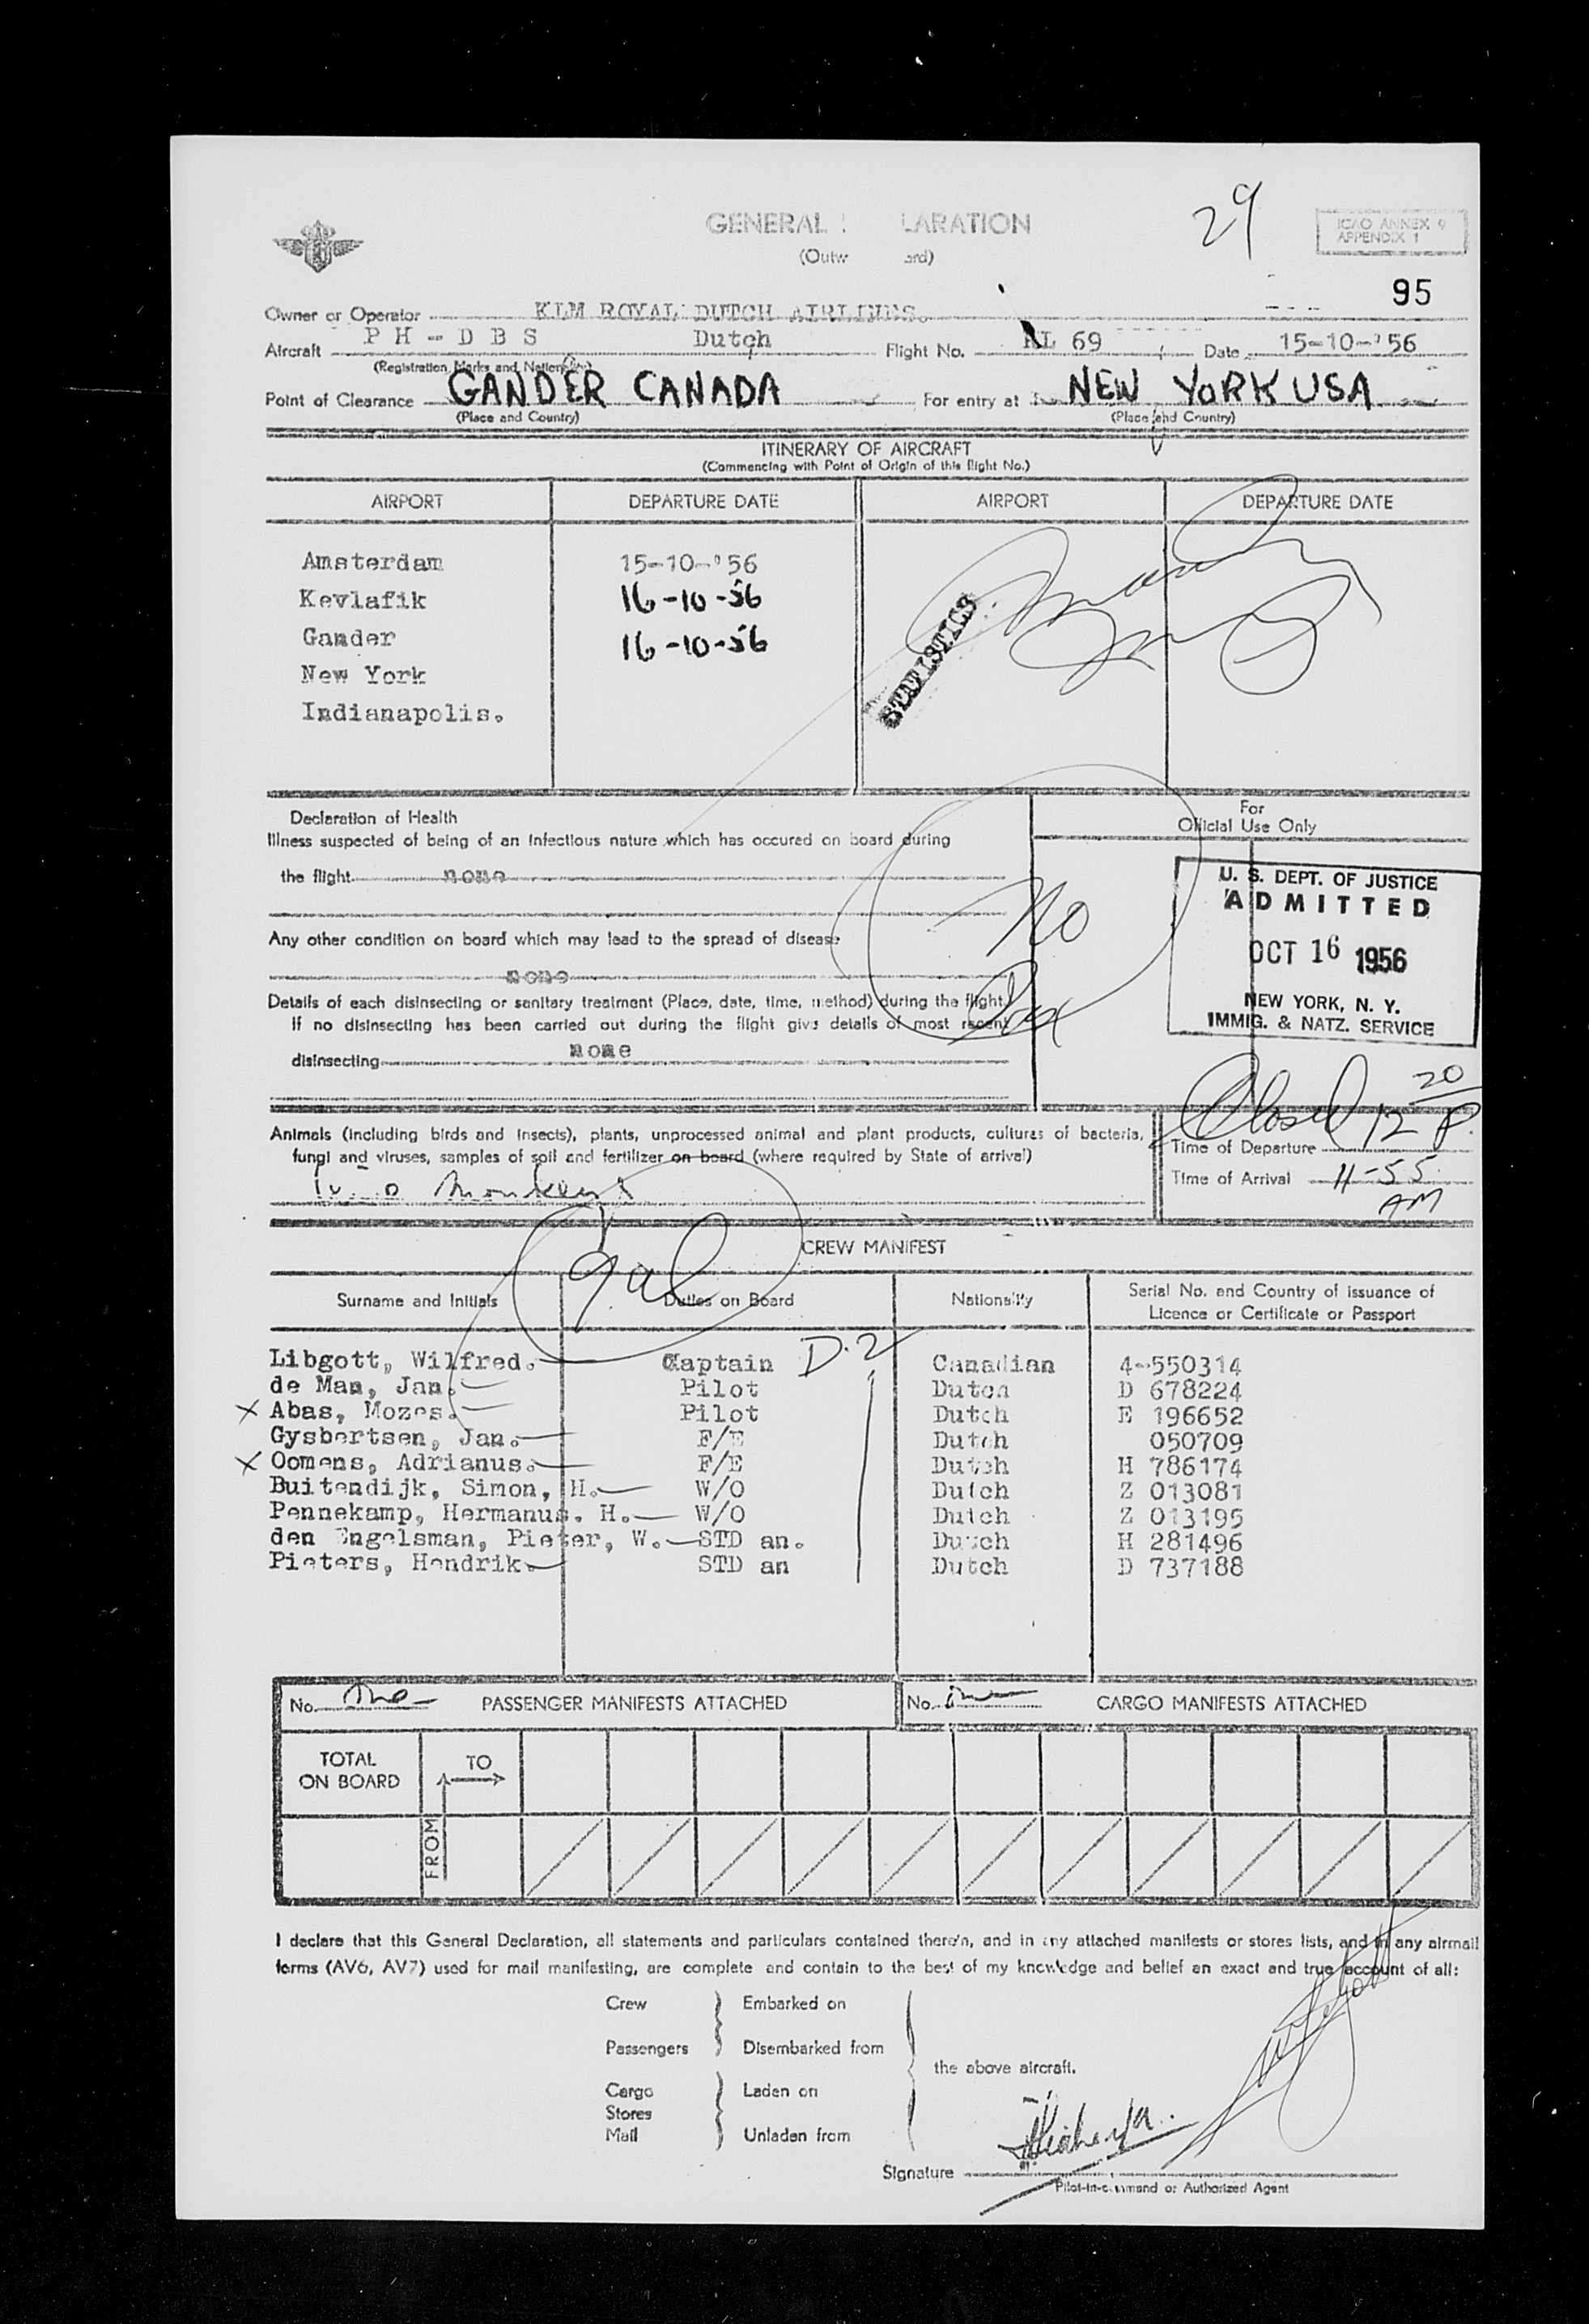 29
GENERAL LARATION
(Outw ard)
ICAO ANNEX 9
APPENDIX 1
95
Owner or Operator KLM ROYAL DUTCH AIRLINES.
Aircraft PH-DBS Dutch Flight No. KL 69 Date 15-10-'56
(Registration Marks and Nationality)
Point of Clearance GANDER CANADA For entry at NEW YORK USA
(Place and Country) (Place and Country)
ITINERARY OF AIRCRAFT
(Commencing with Point of Origin of this flight No.)
AIRPORT DEPARTURE DATE AIRPORT DEPARTURE DATE
Amsterdam 15-10-'56
Kevlafik 16-10-56
Gander 16-10-56
New York
Indianapolis.
STATISTICS
Declaration of Health
Illness suspected of being of an infectious nature which has occured on board during
the flight none
Any other condition on board which may lead to the spread of disease
none
Details of each disinsecting or sanitary treatment (Place, date, time, method) during the flight.
If no disinsecting has been carried out during the flight give details of most recent
disinsecting none
For
Official Use Only
No
U. S. DEPT. OF JUSTICE
ADMITTED
OCT 16 1956
NEW YORK, N. Y.
IMMIG. & NATZ. SERVICE
Closed 12 20 P.
Animals (including birds and insects), plants, unprocessed animal and plant products, cultures of bacteria,
fungi and viruses, samples of soil and fertilizer on board (where required by State of arrival)
monkeys
Time of Departure
Time of Arrival 11-55
AM
CREW MANIFEST
Surname and Initials Duties on Board Nationality Serial No. and Country of issuance of
Licence or Certificate or Passport
Libgott, Wilfred. Captain D.2 Canadian 4-550314
de Man, Jan. Pilot Dutch D 678224
X Abas, Mozes. Pilot Dutch E 196652
Gysbertsen, Jan. F/E Dutch 050709
X Oomens, Adrianus. F/E Dutch H 786174
Buitendijk, Simon, H. W/O Dutch Z 013081
Pennekamp, Hermanus. H. W/O Dutch Z 013195
den Engelsman, Pieter, W. STD an. Dutch H 281496
Pieters, Hendrik. STD an Dutch D 737188
No. PASSENGER MANIFESTS ATTACHED No. CARGO MANIFESTS ATTACHED
TOTAL
ON BOARD
TO
FROM
I declare that this General Declaration, all statements and particulars contained therein, and in any attached manifests or stores lists, and in any airmail
forms (AV6, AV7) used for mail manifesting, are complete and contain to the best of my knowledge and belief an exact and true account of all:
Crew Embarked on
Passengers Disembarked from
the above aircraft.
Cargo Laden on
Stores
Mail Unladen from
Signature
Pilot-in-command or Authorized Agent